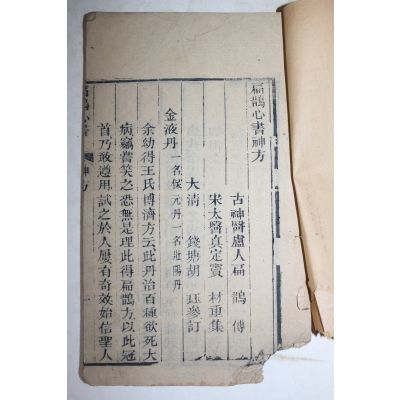 扁鵲心書神方
古神醫盧人扁　鵲　傳
宋太醫真定竇　材重集
大清　錢塘胡　珏參訂
金液丹　一名保元丹一名壯陽丹
余幼得王氏博濟方云此丹治百種欲死大
病竊嘗笑之恐無是理此得扁鵲方以此冠
首乃敢遵用試之於人屢有奇效始信聖人
扁鵲心書　神方　一